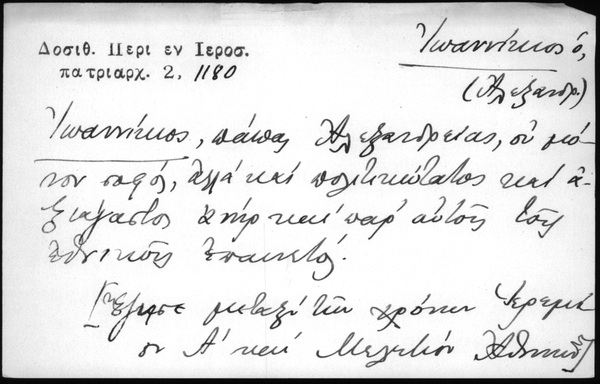 Δοσιθ. Περι εν Ιεροσ.
πατριαρχ. 2, 1180
Ἰωαννίκιος ὁ,
(Ἀλεξανδρ.)
Ἰωαννίκιος, πάπας Ἀλεξανδρείας, οὐ μό-
νον σοφός, ἀλλὰ καὶ πολιτικώτατος καὶ ἀ-
ξιάγαστος ἀνὴρ καὶ παρ' αὐτοῖς τοῖς
ἐθνικοῖς ἐπαινετός.
μεταξὺ τῶν χρόνων Ἱερεμί-
ου Α' καὶ Μελετίου